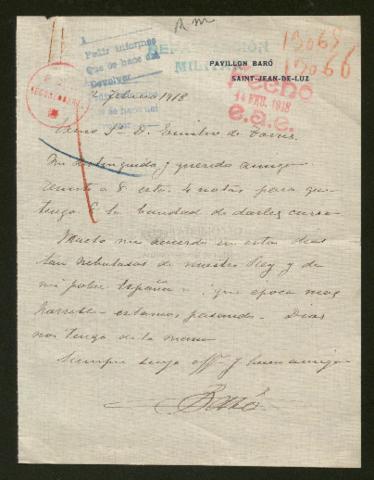 R M
1
Pedir informes
Que se hace del
Devolver
REPATRIACIÓN
MILITAR
PAVILLON BARÓ
SAINT-JEAN-DE-LUZ
13065
13066
HECHO
14 FEV. 1918
e.a.e.
Febrero 1918
Exmo Sr D. Emilio de Torres.
Mi distinguido y querido amigo
remito a V esta 4 notas para que
tenga V la bondad de darles curso
Mucho me acuerdo en estos dias
tan nebulosos de nuestro Rey y de
mi pobre España = ¡que epoca mas
horrible estamos pasando. Dios
nos tenga de la mano
Siempre suyo affº y buen amigo
Baró